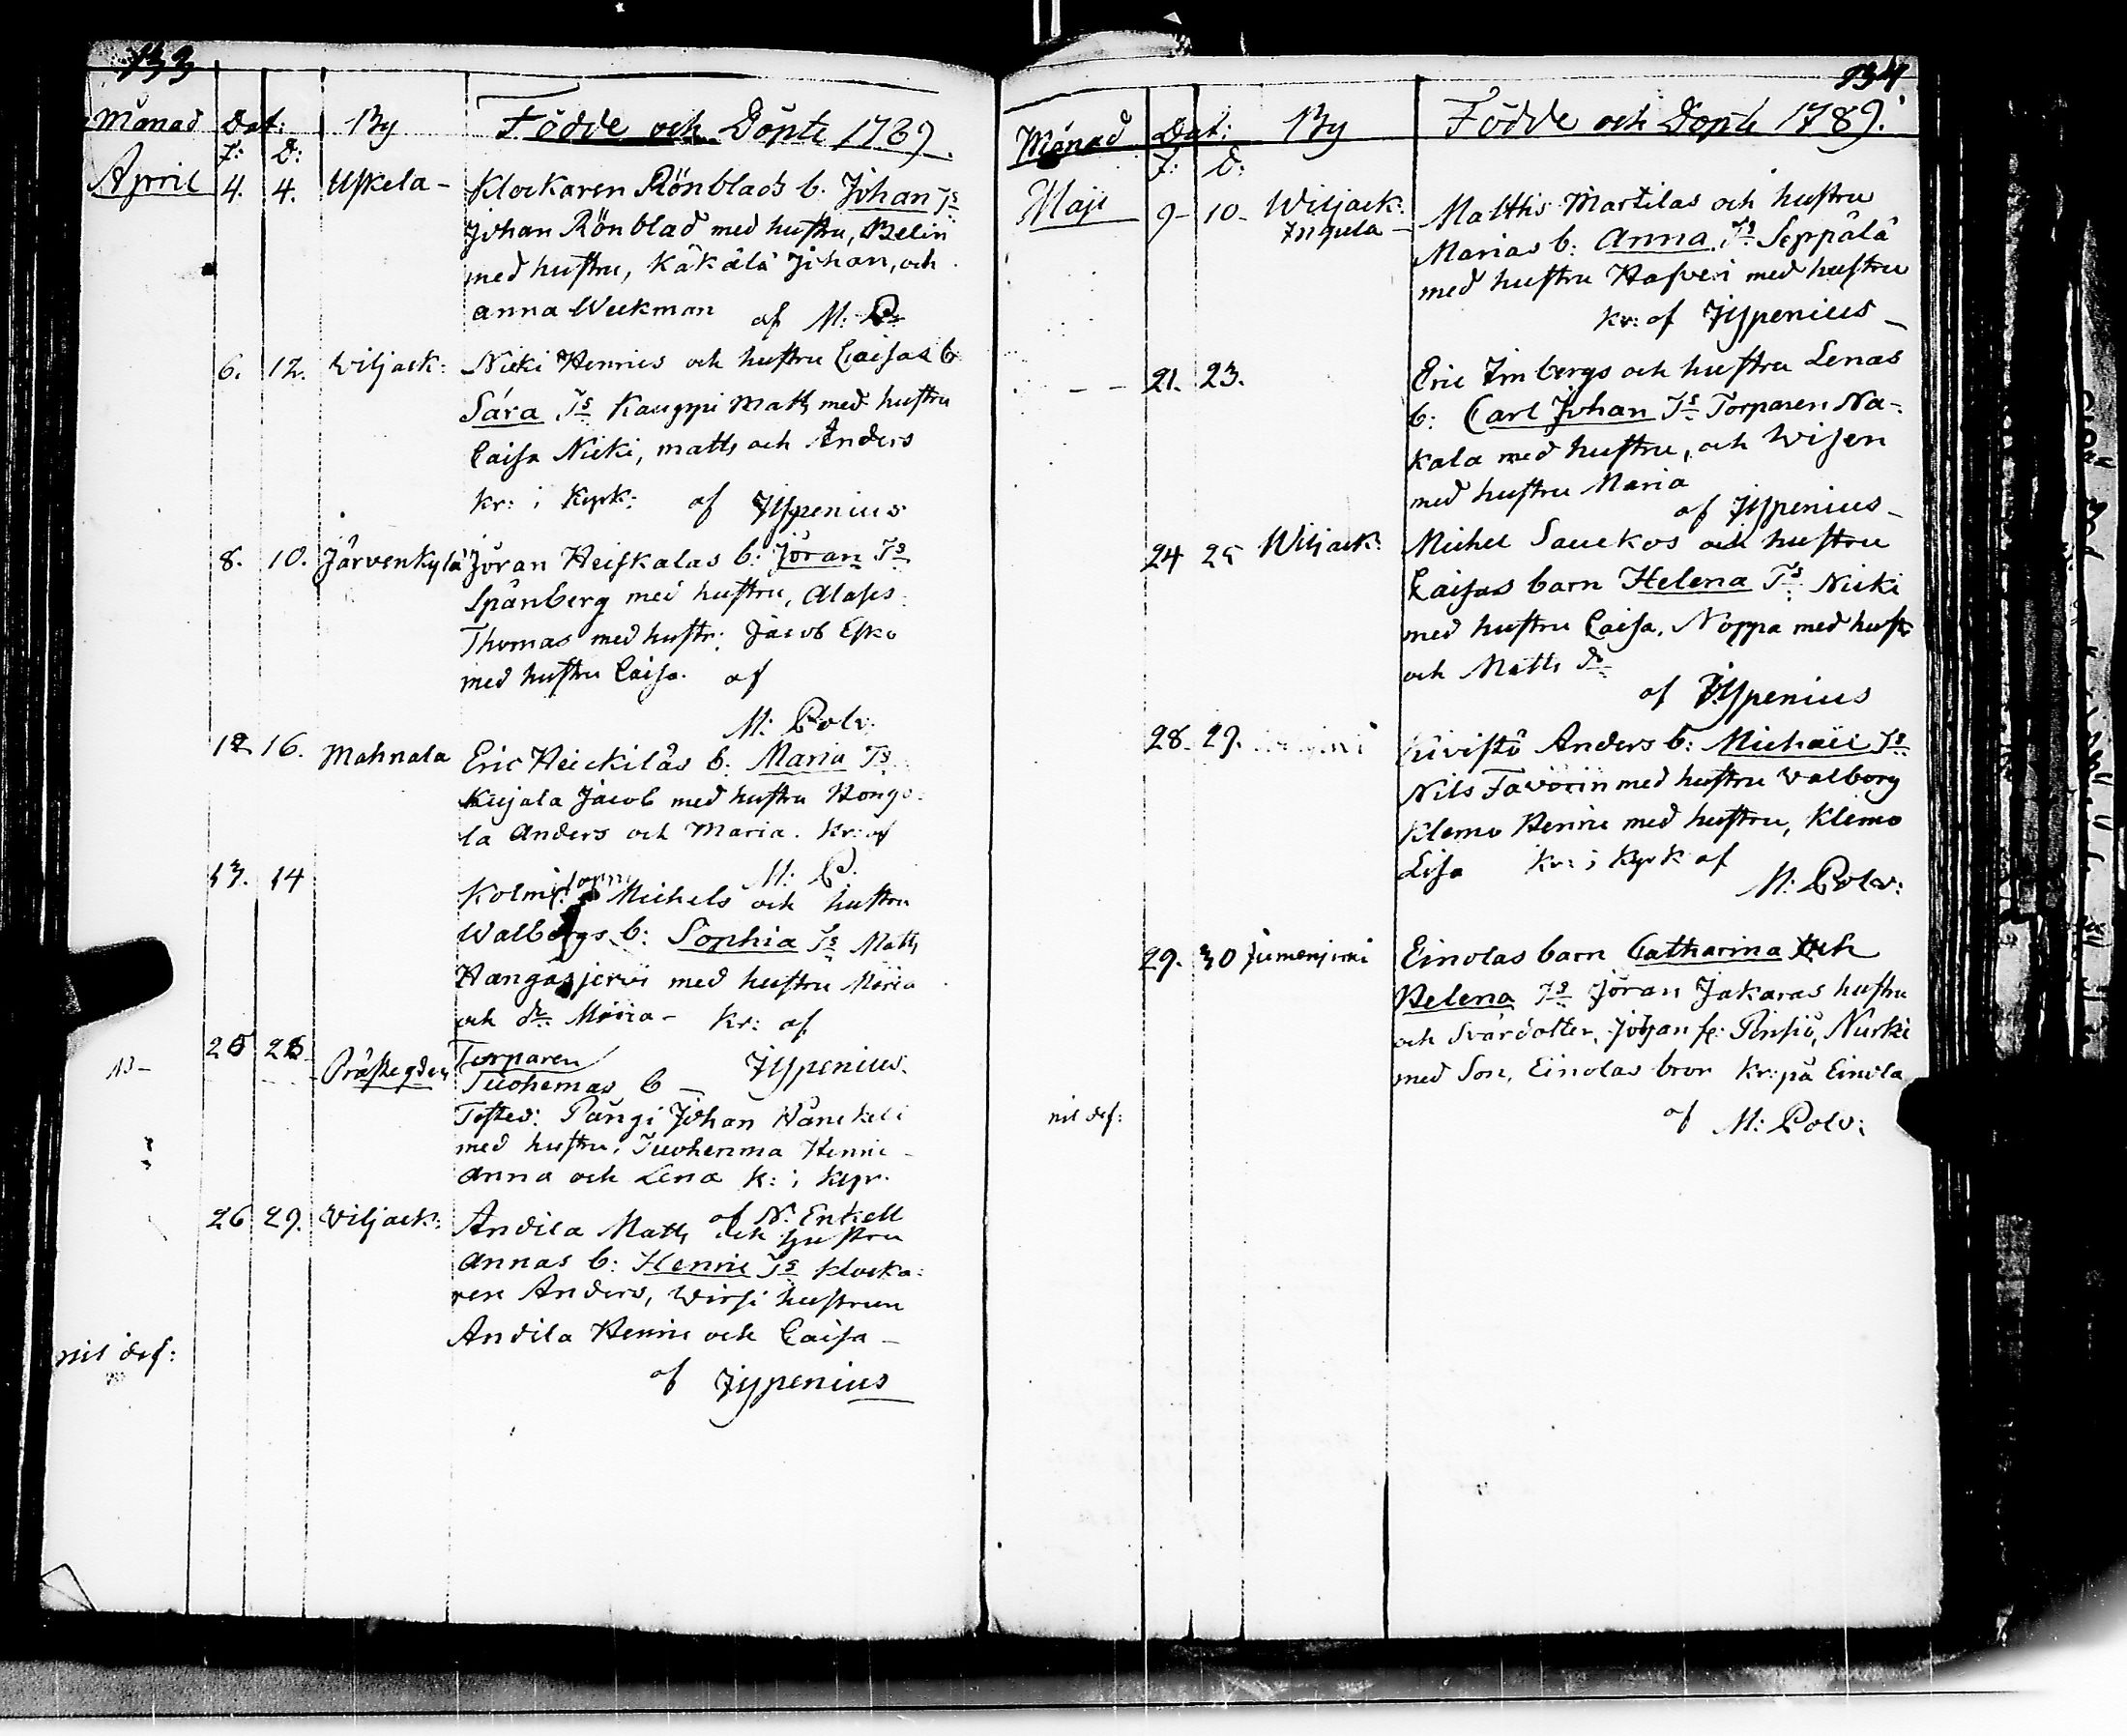 133
Månad Dat: By Födde och Döpte 1789.
F: D:
April 4. 4. Uskela - Klockaren Rönblads b. Johan Ts
Johan Rönblad med hustru, Belin
med hustru, Käkälä Johan, och
Anna Weckman af M: P:
6. 12. Wiljack: Nicki Henrics och hustru Caisas b
Sara Ts Kauppi Matts med hustru
Caisa Nicki, Matts och Anders
kr: i Kyrk: af Jypenius
8. 10. Järvenkylä Jöran Heiskalas b: Jöran Ts
Spånberg med hustru, Alases
Thomas med hustr: Jacob Esko
med hustru Caisa. af
M: Polv:
12 16. Mahnala Eric Heickiläs b: Maria Ts
Kujala Jacob med hustru Hongo-
la Anders och Maria. kr: af
M: P.
13. 14 Michels och hustru
Walborgs b: Sophia Ts Matts
Hangasjervi med hustru Maria
och dr: Maria - kr: af
Jypenius.
25 28 Prästegden Torparen
Tuohemas b -
Testes: Pångi Johan Hänekeli
med hustru, Tuohenma Henric
Anna och Lena k: i kyr.
af N: Enkell
26 29. Viljack: Andila Matts och hustru
Annas b: Henric Ts klocka:
ren Anders, Wirsi hustrun
Andila Henric och Caisa -
af Jypenius
nil def:
134
Månad Dat: By Födde och Döpte 1789.
F: D:
Maji 9- 10- Wiljack: Matthis Martilas och hustru
Ingela - Marias b: Anna Ts Seppälä
med hustru Hafveri med hustru
kr: af Jypenius -
- - 21. 23. Eric Imbergs och hustru Lenas
b: Carl Johan Ts Torparen Na-
kala med hustru, och Wisen
med hustru Maria
af Jypenius -
24 25 Wiljack: Michel Sauckos och hustru
Caisas barn Helena Ts Nicki
med hustru Caisa, Noppa med hustr
och Matts dr
af Jypenius
28- 29. Kivistö Anders b: Michaël Ts
Nils Favorin med hustru Walborg
Klemo Henric med hustru, Klemo
Lisa kr: i Kyrk af
M: Polv:
29. 30 Jumesjerni Einolas barn Catharina och
Helena Ts Jöran Jakaras hustru
och Svärdotter, Johan Pensiö, Nurki
med Son, Einolas bror kr: på Einola
nil def: af M: Polv: